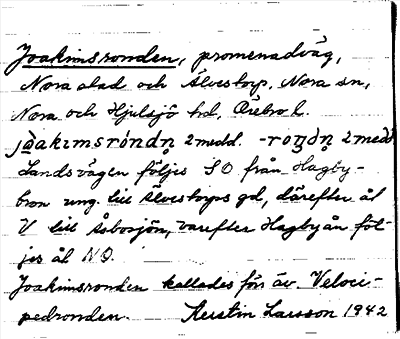 Joakimsronden, promenadväg,
Nora stad och Älvestorp, Nora sn,
Nora och Hjulsjö hd, Örebro l.
2 medd. 2 medd.
Landsvägen följes SO från Hagby-
bron ung. till Älvestorps gd, därefter åt
V till Åsbosjön, varefter Hagbyån föl-
jes åt NO.
Joakimsronden kallades förr äv. Veloci-
pedronden. Kerstin Larsson 1942